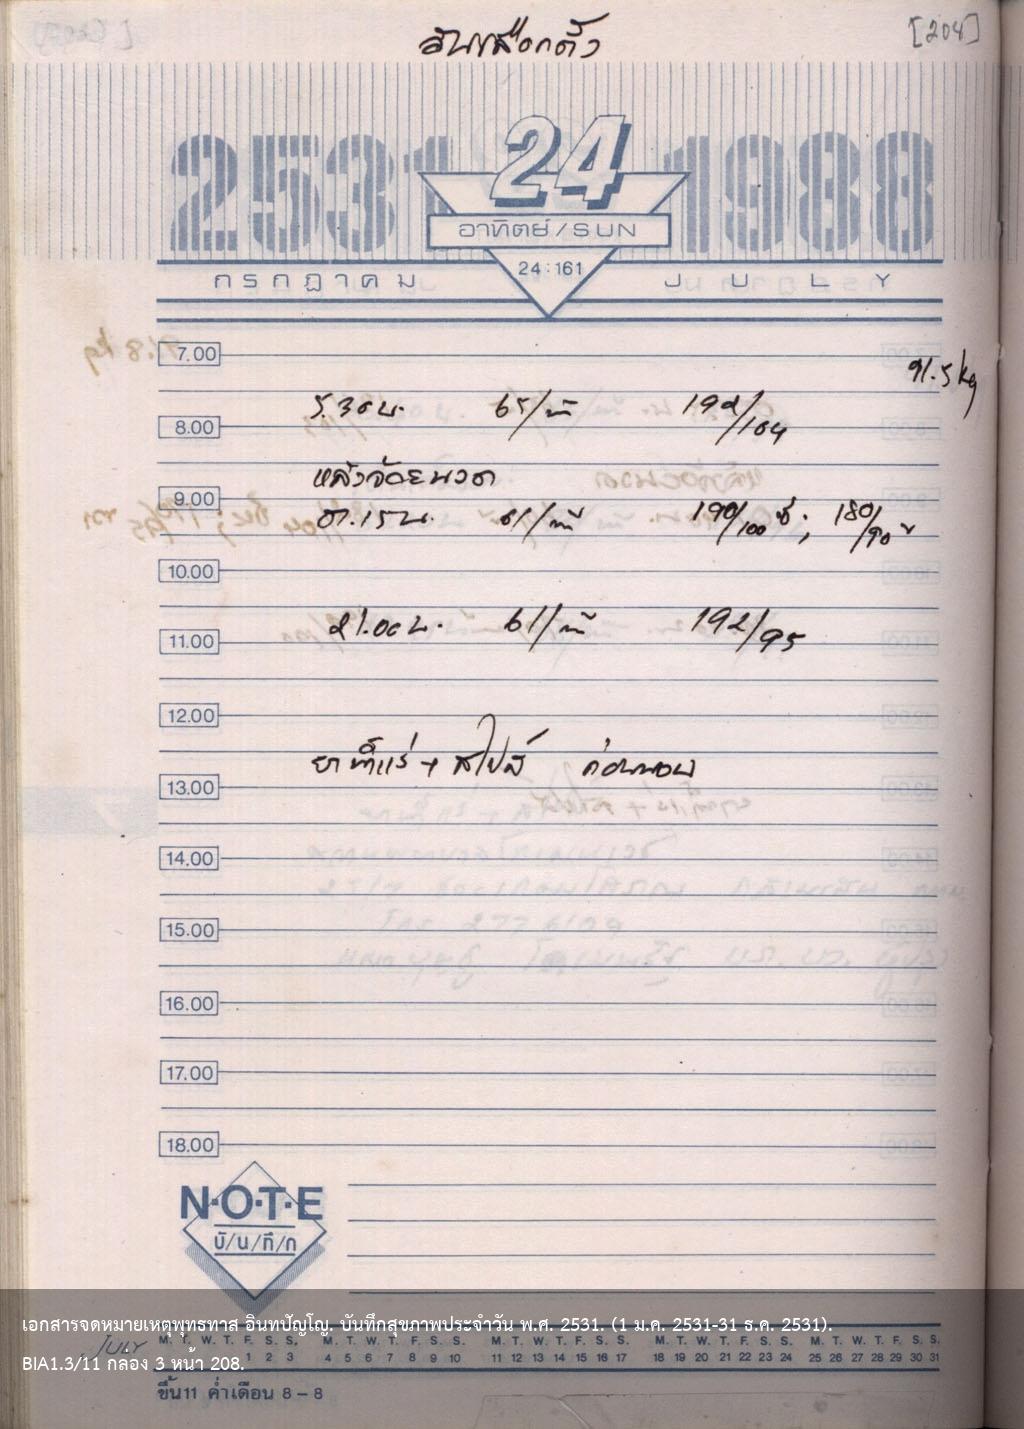 วันเลือกตั้ง
[208]
2531
24
1988
อาทิตย์/SUN
24:161
กรกฎาคม
JULY
7.00
91.5 kg
5.30 น. 65/ที 192/104
8.00
หลังจ้อยนวด
9.00
61/ที 190/100 ซ้; 180/90
10.00
21.00 น. 61/ที 192/95
11.00
12.00
ก่อนนอน
13.00
14.00
15.00
16.00
17.00
18.00
N·O·T·E
บั/น/ทึ/ก
เอกสารจดหมายเหตุพุทธทาส อินทปัญโญ. บันทึกสุขภาพประจำวัน พ.ศ. 2531. (1 ม.ค. 2531-31 ธ.ค. 2531).
JULY
M. T. W. T. F. S. S. M. T. W. T. F. S. S. M. T. W. T. F. S. S. M. T. W. T. F. S. S. M. T. W. T. F. S. S.
1 2 3 4 5 6 7 8 9 10 11 12 13 14 15 16 17 18 19 20 21 22 23 24 25 26 27 28 29 30 31
BIA1.3/11 กล่อง 3 หน้า 208.
ขึ้น11 ค่ำเดือน 8 – 8